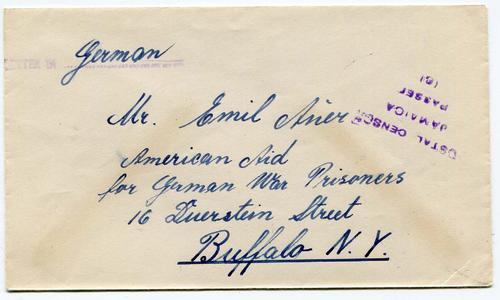 LETTER IN German
Mr. Emil Auer
American Aid
for German War Prisoners
16 Duerstein Street
Buffalo N.Y.
POSTAL CENSOR
JAMAICA
PASSED
(6)